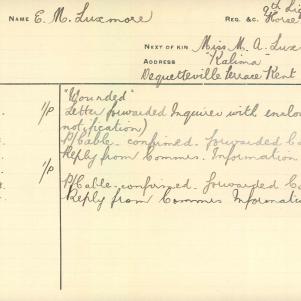 NAME E. M. Luxmore
REG. &C. 9th Lig
Horse
NEXT OF KIN Miss M. A. Lux
ADDRESS "Kalima"
Dequetteville Terrace Kent
1/P "Wounded"
Letter forwarded Inquirer with enclo
notification)
P/Cable. confirmed. forwarded Ca
Reply from Commis. Information
1/P
P/Cable. confirmed. forwarded Ca
Reply from Commis Informatio